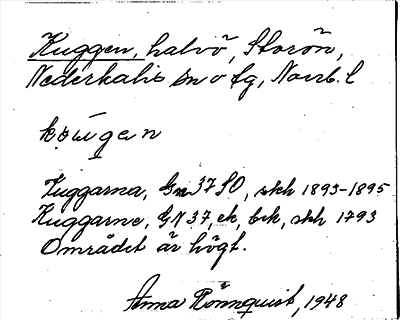 Kuggen, halvö, Storön,
Nederkalix sn o tg, Norrb. l
Kuggarna, Gn 37 SO, skh 1893-1895
Kuggarne, GN 37, ek, bek, skh 1793
Området är högt.
Anna Rönnquist, 1948